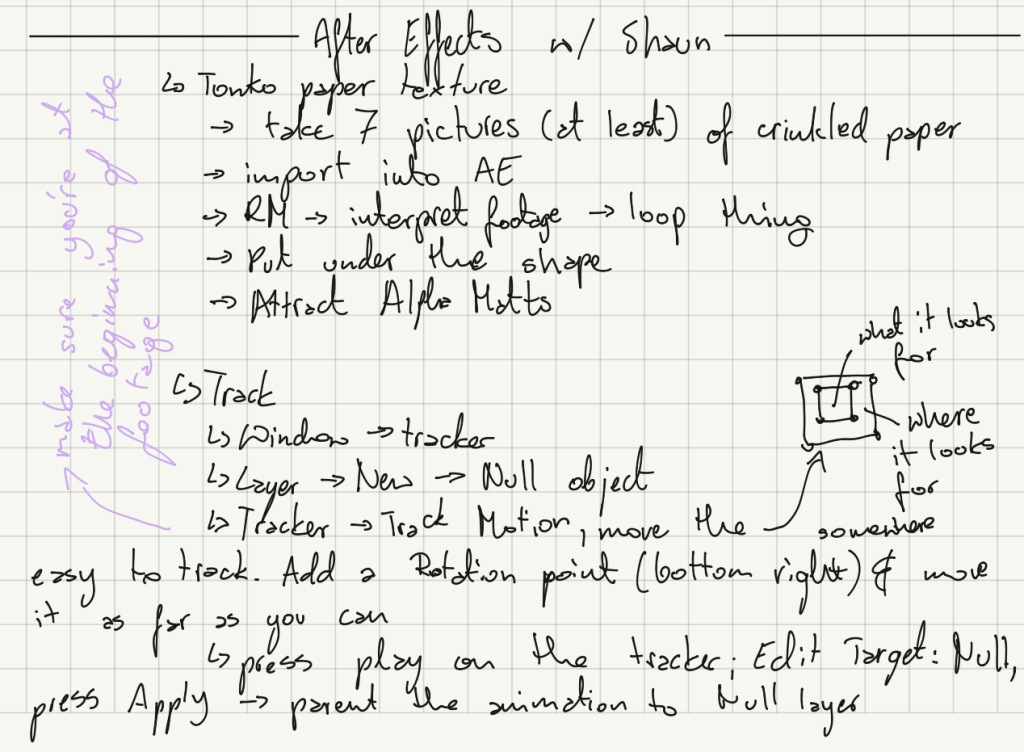 After Effects w/ Shaun
↳ Tonko paper texture
→ take 7 pictures (at least) of crinkled paper
→ import into AE
→ RM → interpret footage → loop thing
→ Put under the shape
→ Attract Alpha Matts
↳ Track
↳ Window → tracker
↳ Layer → New → Null object
↳ Tracker → Track Motion, move the
somewhere
easy to track. Add a Rotation point (bottom right) & move
it as far as you can
↳ press play on the tracker; Edit Target: Null,
press Apply → parent the animation to Null layer
what it looks
for
where
it looks
for
→ make sure you're at
the beginning of the
footage